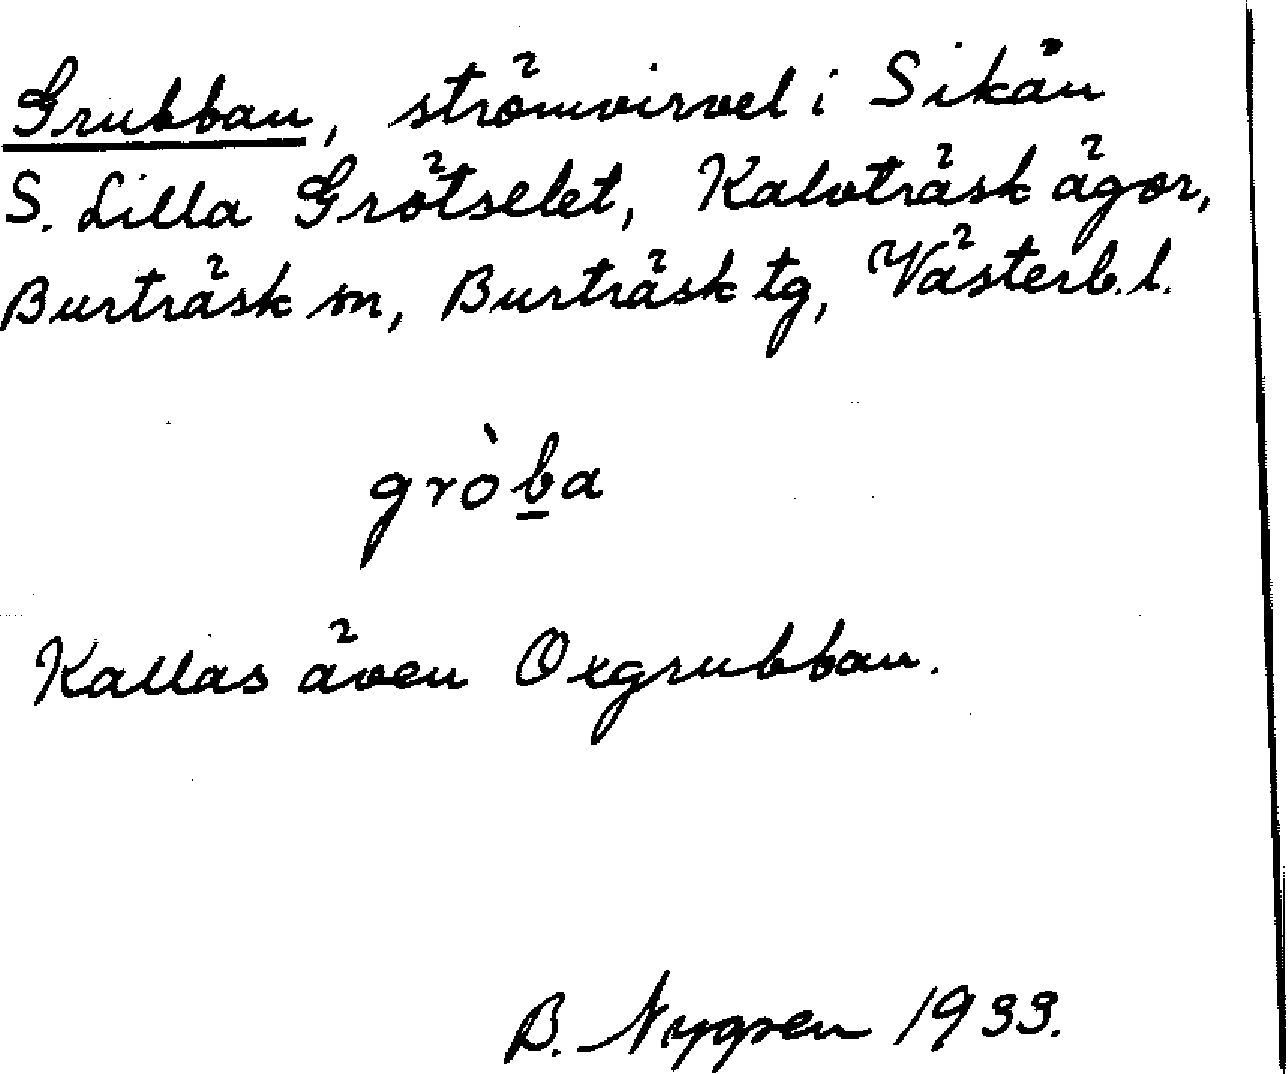 Grubban, strömvirvel i Sikån
S. Lilla Grötselet, Kalvträsk ägor,
Burträsk sn, Burträsk tg, Västerb. l.
grò̀b̲a
Kallas även Oxgrubban.
B. Nygren 1933.